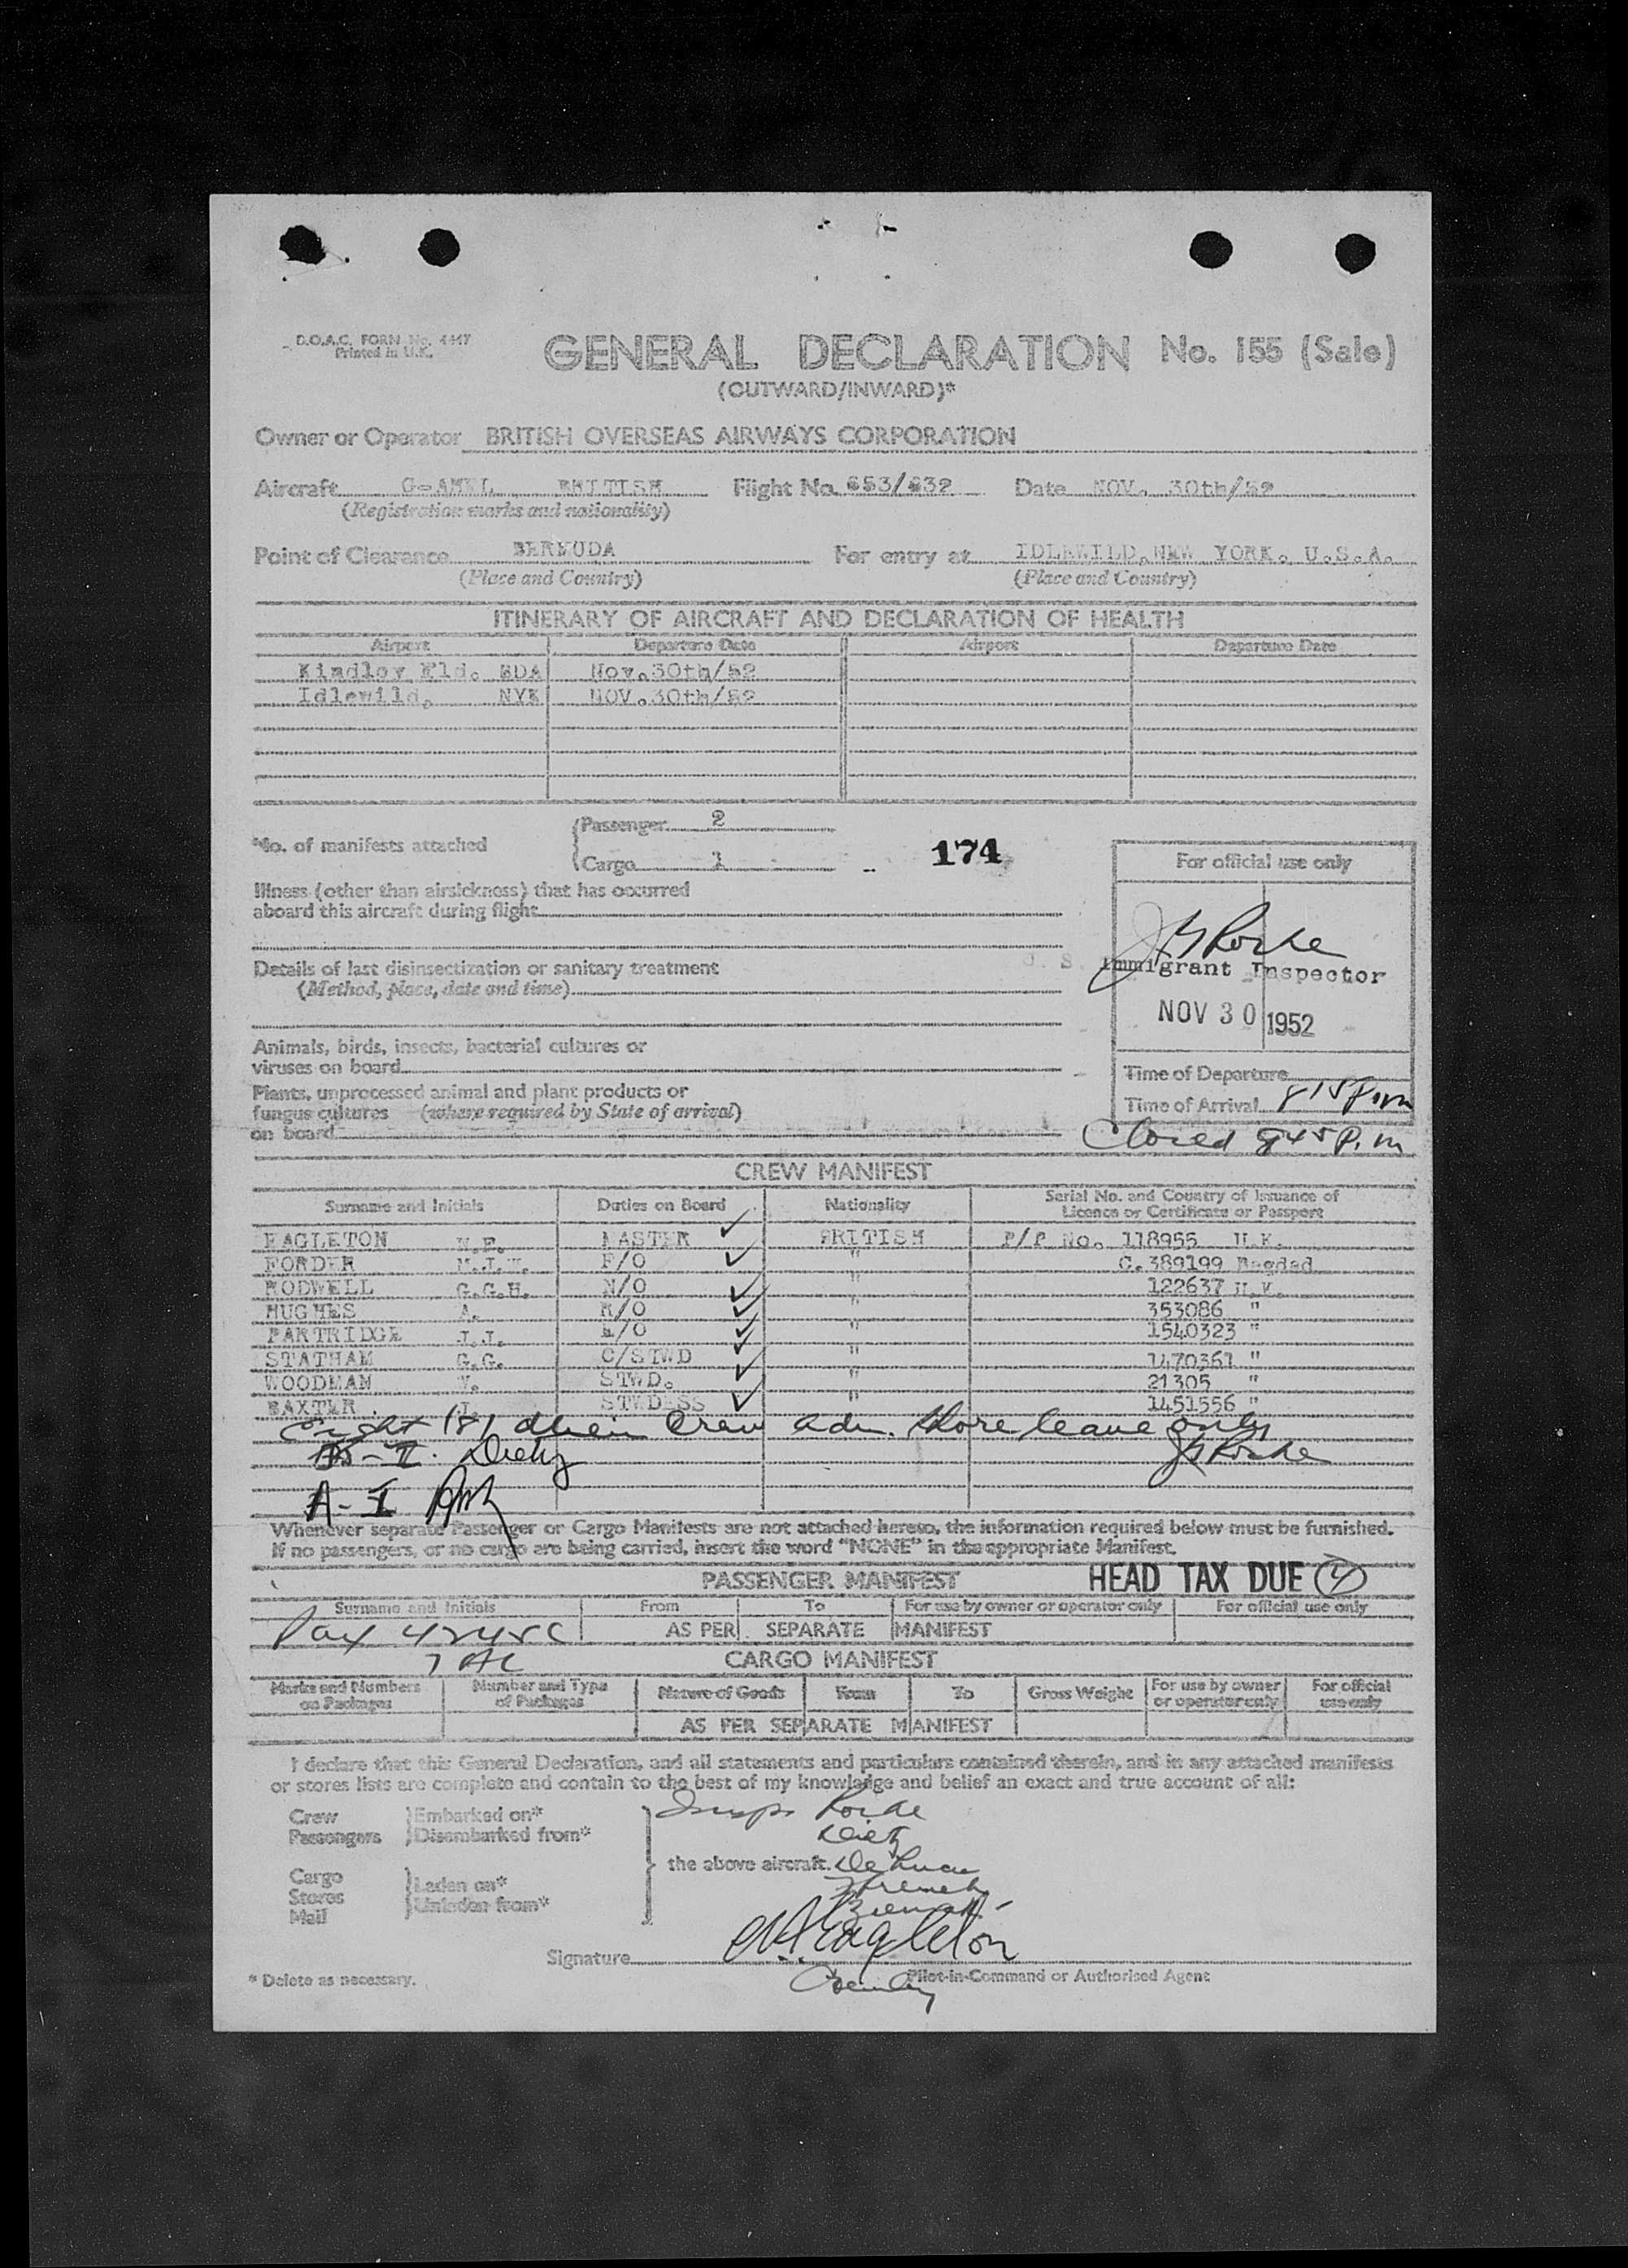 FORM No. 4447
Printed in U.K.
GENERAL DECLARATION No. 155 (Sale)
(OUTWARD/INWARD)*
Owner or Operator BRITISH OVERSEAS AIRWAYS CORPORATION
Aircraft BRITISH Flight No. 653/632 Date NOV. 30th/52
(Registration marks and nationality)
Point of Clearance BERMUDA For entry at IDLEWILD, NEW YORK. U.S.A.
(Place and Country) (Place and Country)
ITINERARY OF AIRCRAFT AND DECLARATION OF HEALTH
Airport Departure Date Airport Departure Date
Kindley Fld. BDA Nov. 30th/52
Idlewild, NYK NOV. 30th/52
*No. of manifests attached
Passenger 2
Cargo 1
174
For official use only
Illness (other than airsickness) that has occurred
aboard this aircraft during flight
Details of last disinsectization or sanitary treatment
(Method, place, date and time)
Immigrant Inspector
NOV 30 1952
Animals, birds, insects, bacterial cultures or
viruses on board
Plants, unprocessed animal and plant products or
fungus cultures (where required by State of arrival)
on board
Time of Departure
Time of Arrival 815 P.m
Closed 845 P.m
CREW MANIFEST
Surname and Initials Duties on Board Nationality Serial No. and Country of Issuance of
Licence or Certificate or Passport
EAGLETON MASTER BRITISH P/P No. 118955 U.K.
FORDER F/O " C.389199 Bagdad
RODWELL G.G.H. N/O " 122637 U.K.
HUGHES A. R/O " 353086 "
PARTRIDGE J.J. E/O " 1540323 "
STATHAM G.G. C/STWD " 1470361 "
WOODMAN STWD. " 21305 "
BAXTER STWDESS " 1451556 "
Eight (8) alien crew adm. shore leave only
Dietz
A-I
Whenever separate Passenger or Cargo Manifests are not attached hereto, the information required below must be furnished.
If no passengers, or no cargo are being carried, insert the word "NONE" in the appropriate Manifest.
PASSENGER MANIFEST HEAD TAX DUE 4
Surname and Initials From To For use by owner or operator only For official use only
AS PER SEPARATE MANIFEST
CARGO MANIFEST
Marks and Numbers on Packages Number and Type of Packages Nature of Goods From To Gross Weight For use by owner or operator only For official use only
AS PER SEPARATE MANIFEST
I declare that this General Declaration, and all statements and particulars contained therein, and in any attached manifests
or stores lists are complete and contain to the best of my knowledge and belief an exact and true account of all:
Crew Embarked on*
Passengers Disembarked from*
the above aircraft.
Cargo Laden on*
Stores Unladen from*
Mail
Signature Eagleton
* Delete as necessary. Pilot-in-Command or Authorised Agent